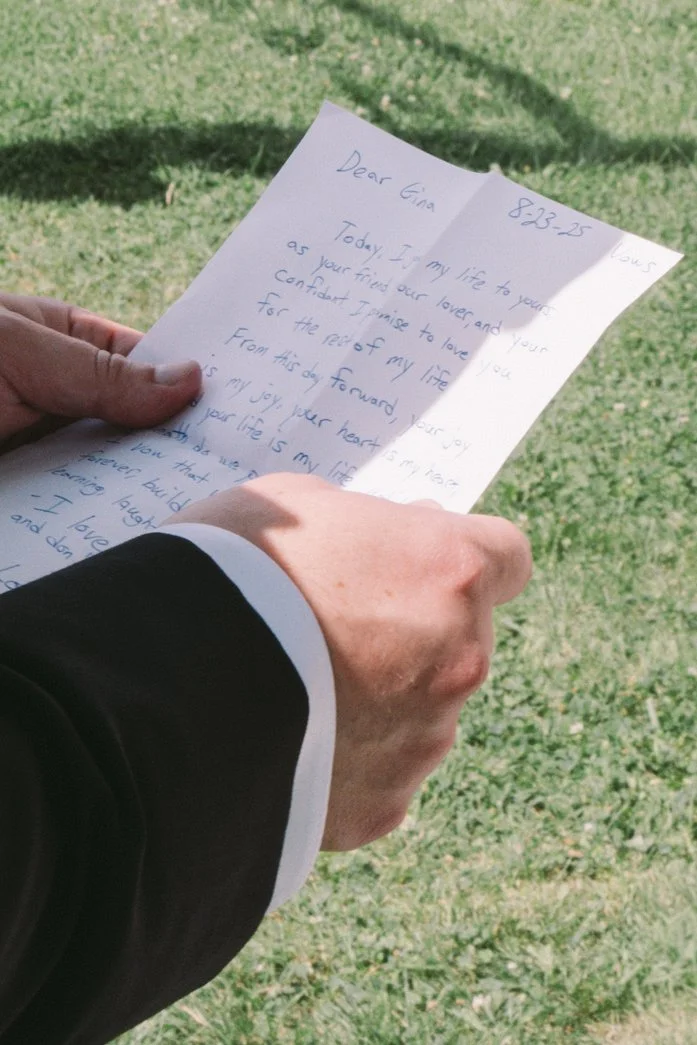 Dear Gina
8-23-25
Vows
Today, I my life to yours
as your friend our lover, and your
confidant I promise to love you
for the rest of my life
From this day forward, your joy
is my joy, your heart is my heart,
your life is my life
do we
I vow that
forever, build
learning, laugh
- I love
and don